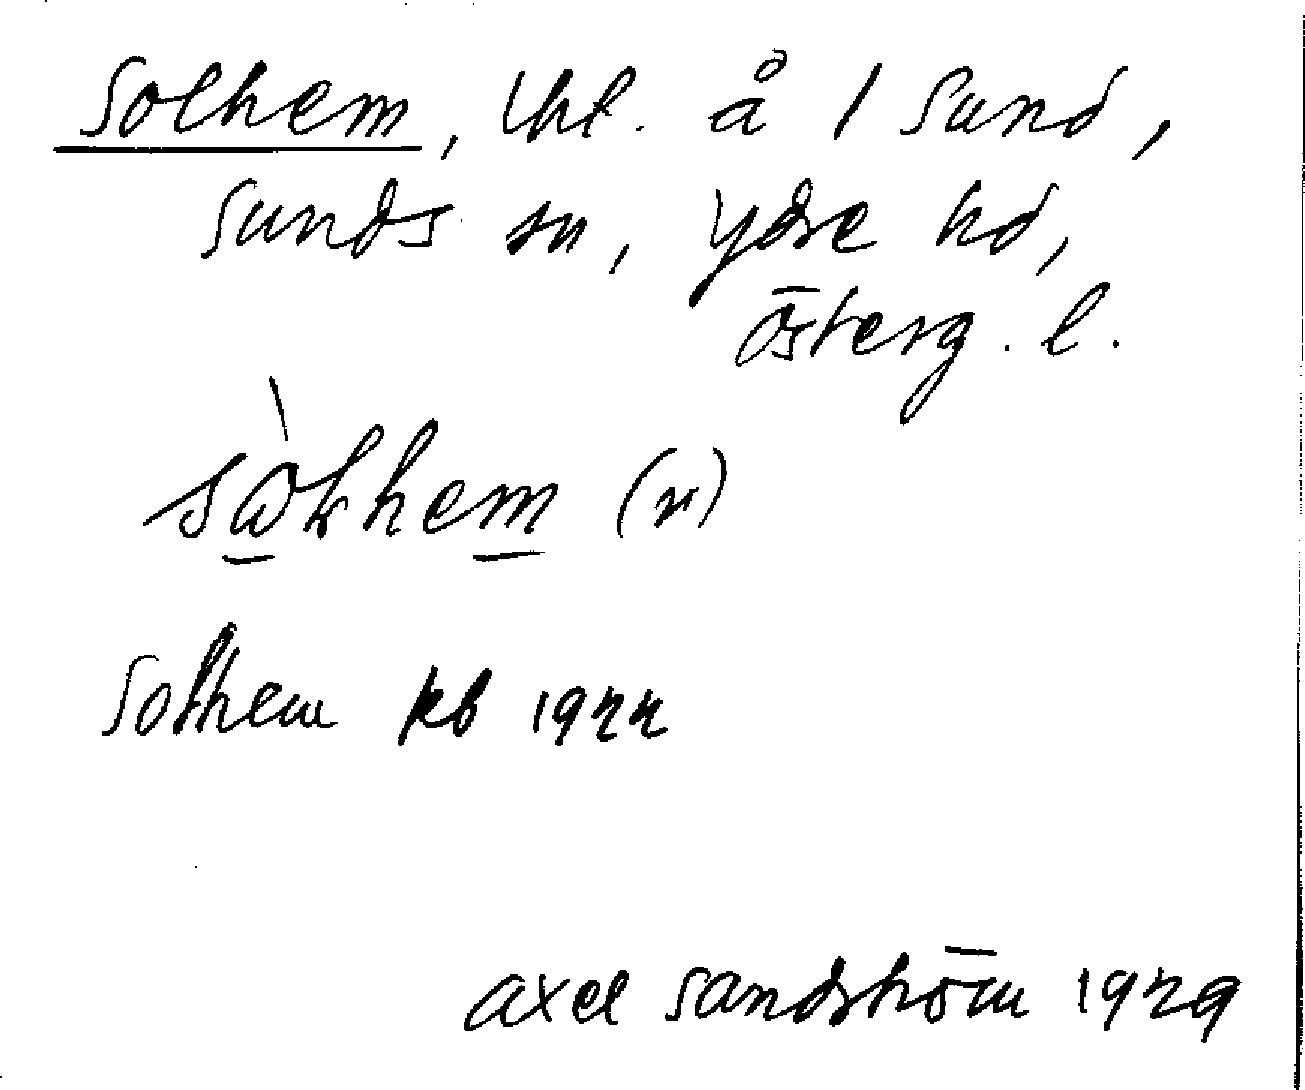 Solhem, lht. å 1 Sund,
Sunds sn, Ydre hd,
Österg. l.
Solhem kb 1922
Axel Sandström 1929